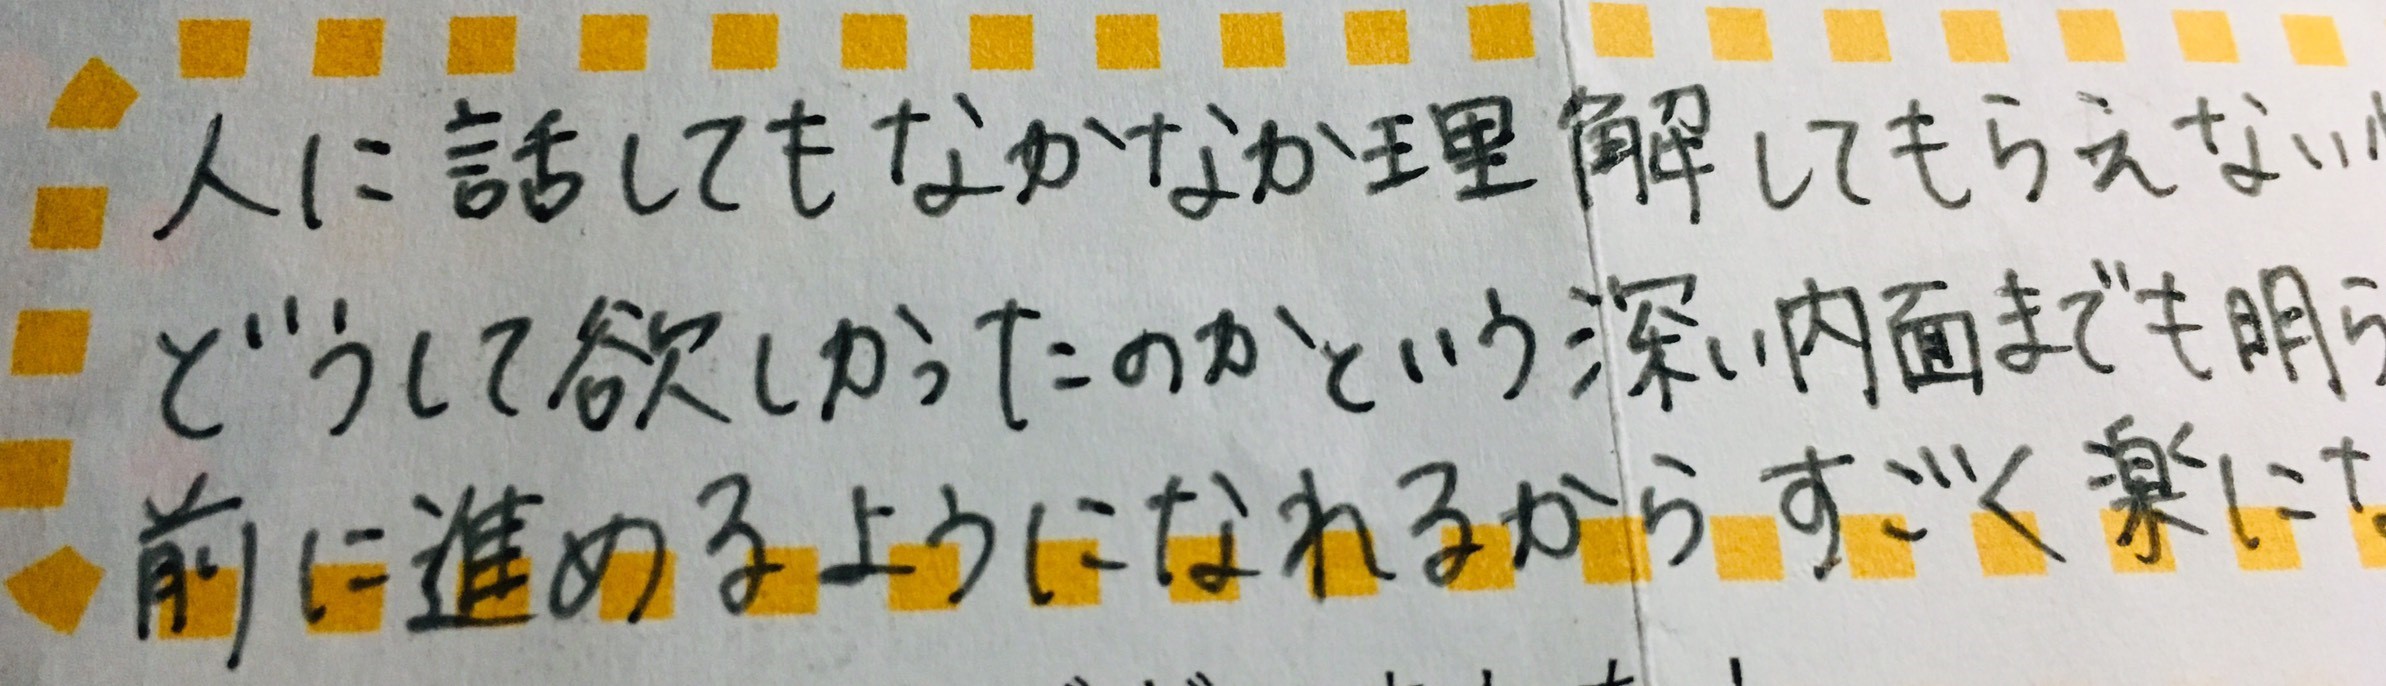 人に話してもなかなか理解してもらえない
どうして欲しかったのかという深い内面までも明ら
前に進めるようになれるからすごく楽にな